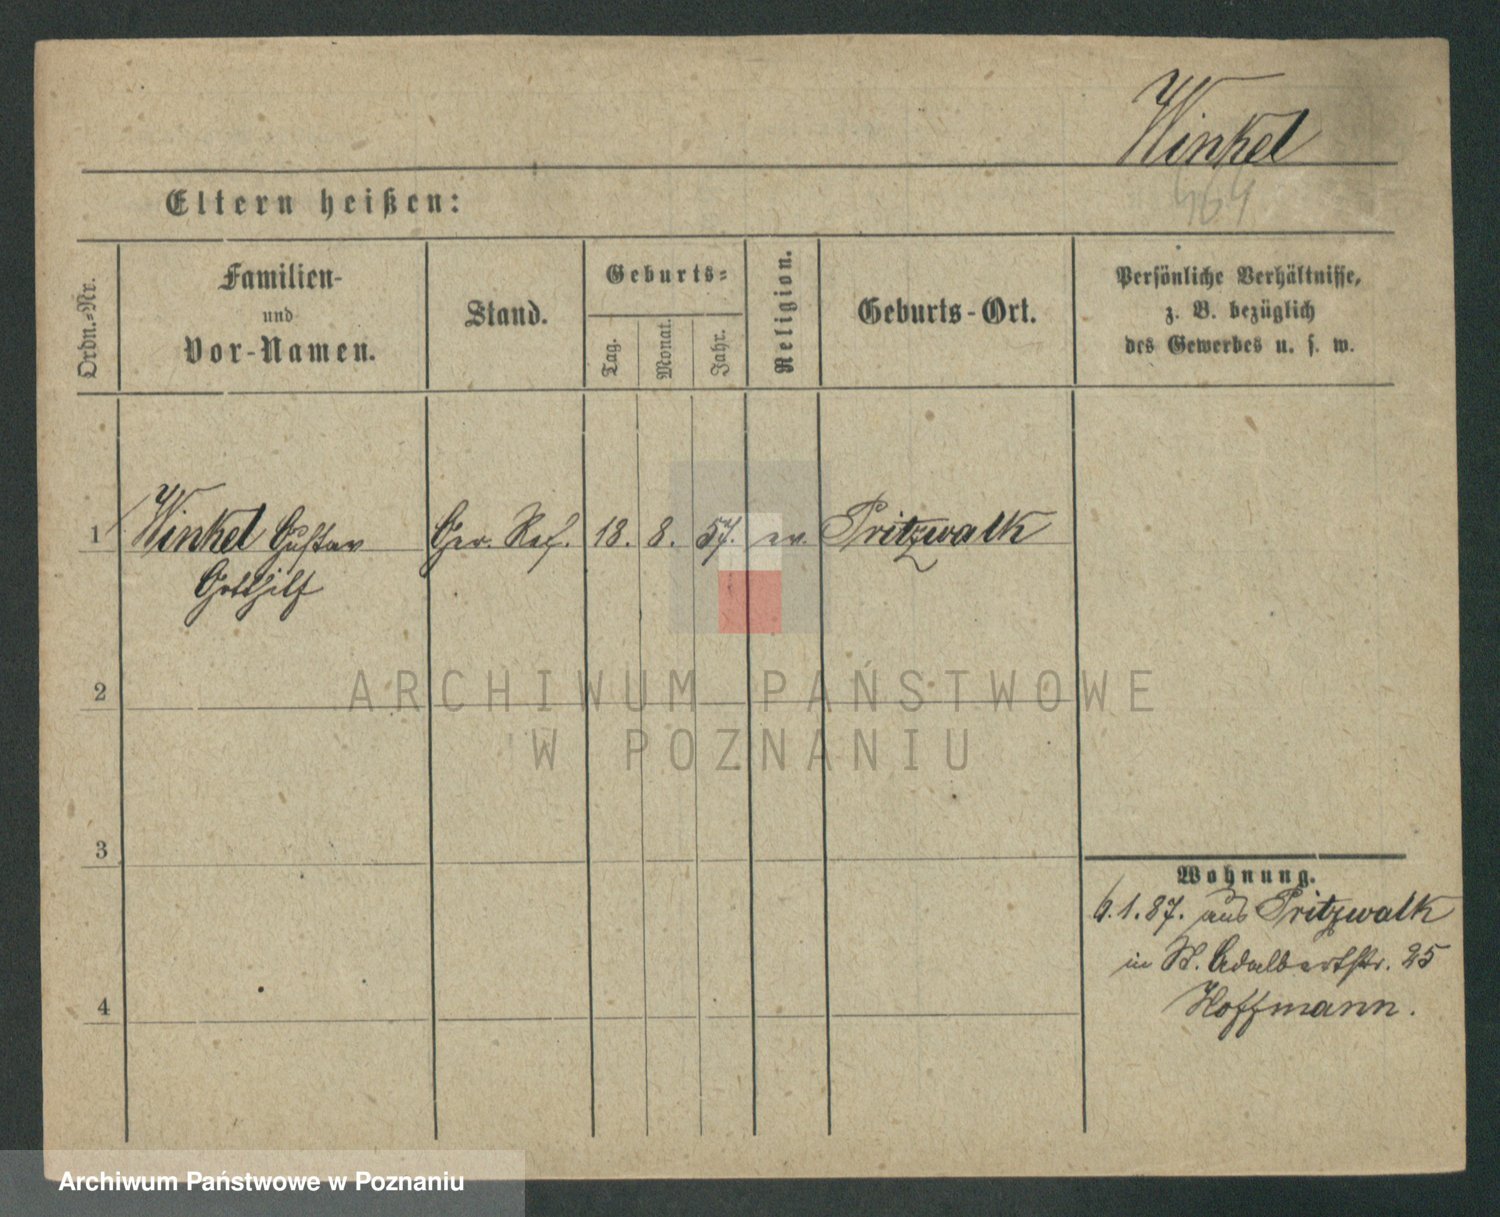 Winkel
464
Eltern heißen:
Ordn.-Nr.
Familien-
und
Vor-Namen.
Stand.
Geburts-
Tag.
Monat.
Jahr.
Religion.
Geburts-Ort.
Persönliche Verhältnisse,
z. B. bezüglich
des Gewerbes u. s. w.
1 Winkel Gustav Ger. Ref. 18. 8. 57. ev. Pritzwalk
Gotthilf
2
3
4
Wohnung.
6.1.87. aus Pritzwalk
in St. Adalbertstr. 25
Hoffmann.
ARCHIWUM PAŃSTWOWE
W POZNANIU
Archiwum Państwowe w Poznaniu